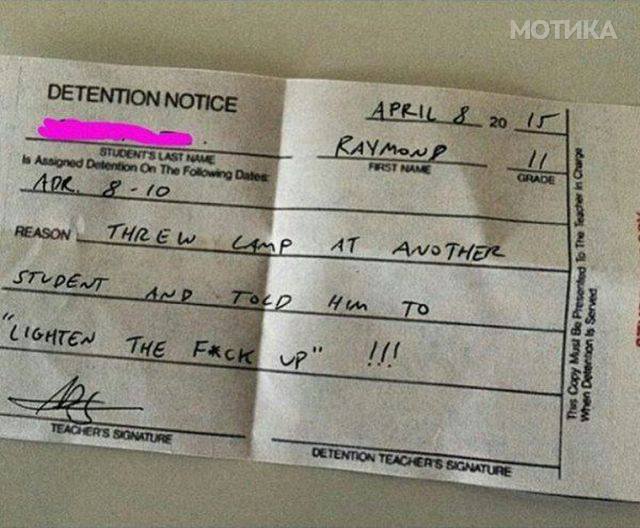 МОТИКА
DETENTION NOTICE
APRIL 8 20 15
STUDENT'S LAST NAME
RAYMOND 11
FIRST NAME GRADE
Is Assigned Detention On The Following Dates:
APR. 8-10
REASON THREW LAMP AT ANOTHER
STUDENT AND TOLD HIM TO
"LIGHTEN THE F*CK UP" !!!
TEACHER'S SIGNATURE
DETENTION TEACHER'S SIGNATURE
This Copy Must Be Presented To The Teacher in Charge
When Detention Is Served